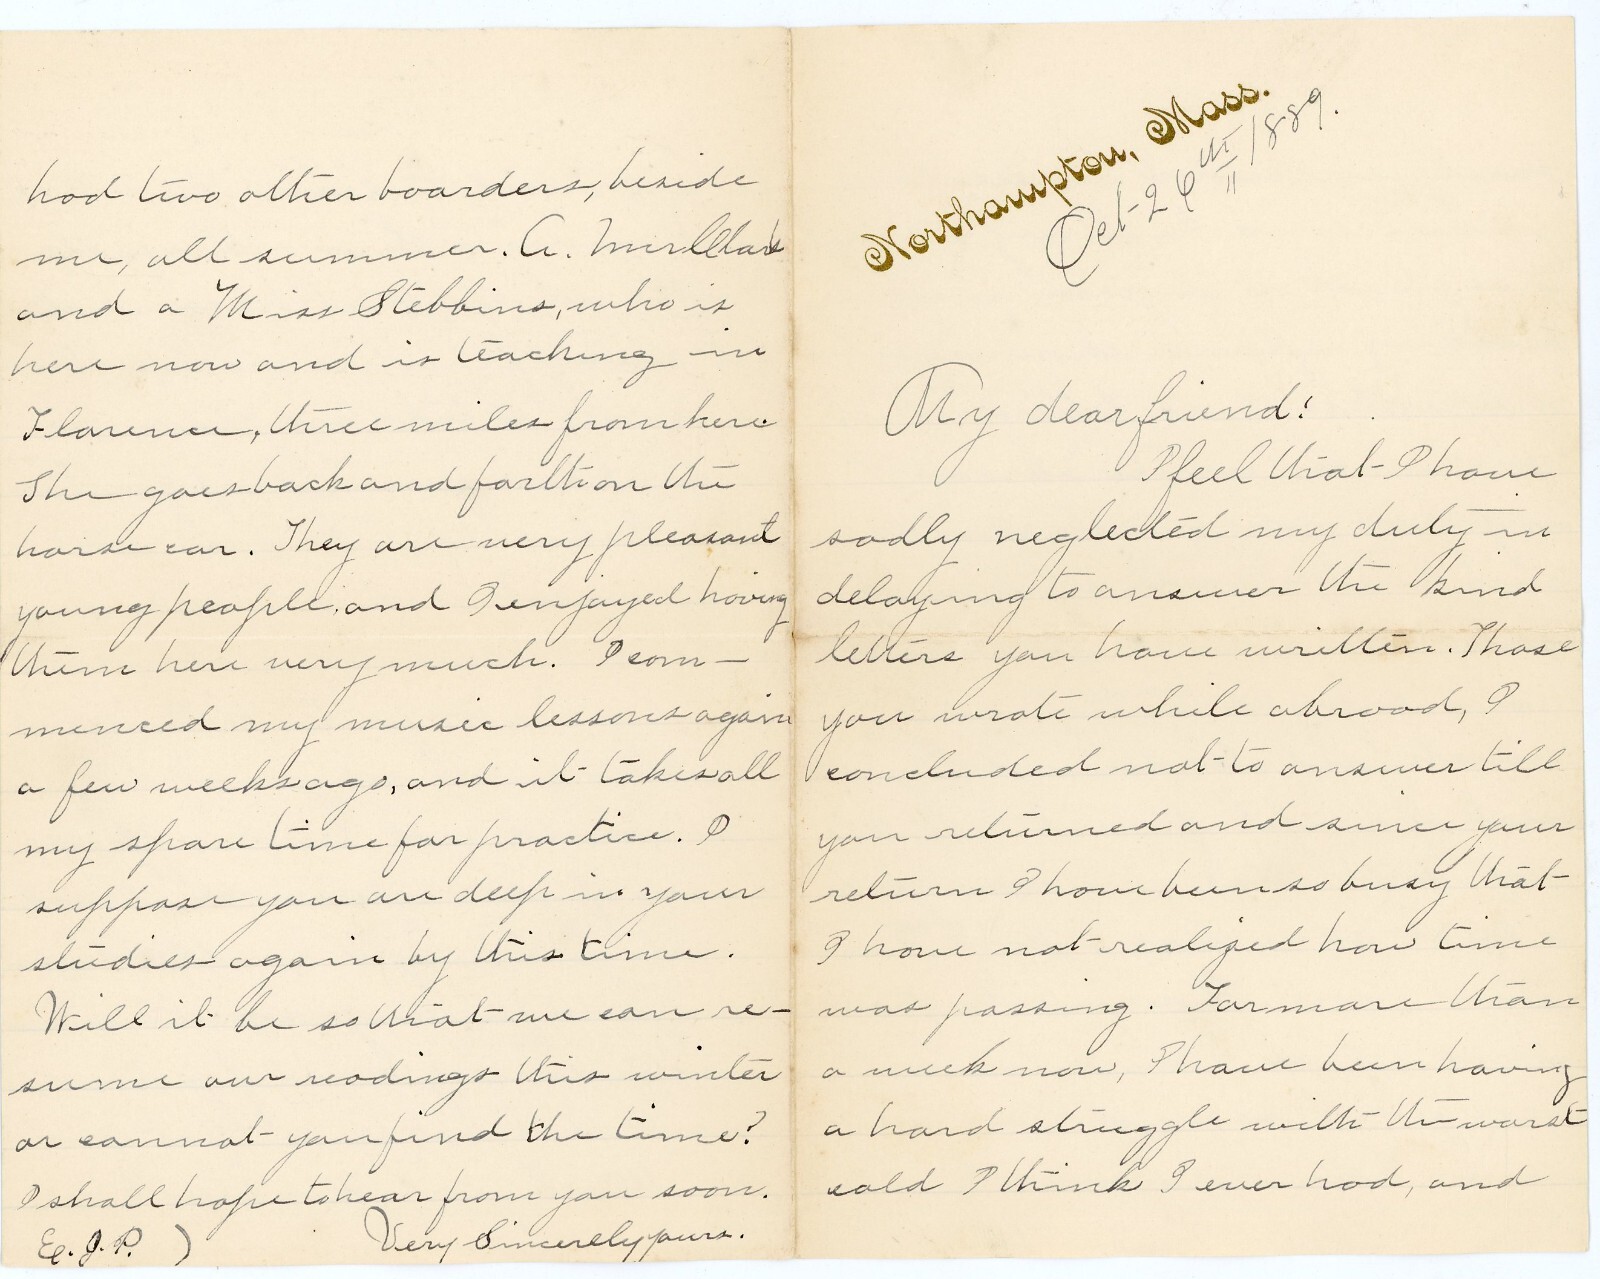 Northampton, Mass.
Oct-26th/1889.
My dear friend!
I feel that I have
sadly neglected my duty in
delaying to answer the kind
letters you have written. Those
you wrote while abroad, I
concluded not to answer till
you returned and since your
return I have been so busy that
I have not realized how time
was passing. For more than
a week now, I have been having
a hard struggle with the worst
cold I think I ever had, and
had two other boarders, beside
me, all summer. A. Mr Clark
and a Miss Stebbins, who is
here now and is teaching in
Florence, three miles from here.
She goes back and forth on the
horse car. They are very pleasant
young people, and I enjoyed having
them here very much. I com-
menced my music lessons again
a few weeks ago, and it takes all
my spare time for practice. I
suppose you are deep in your
studies again by this time.
Will it be so that we can re-
sume our readings this winter
or cannot you find the time?
I shall hope to hear from you soon.
Very Sincerely yours.
E. J. P. )